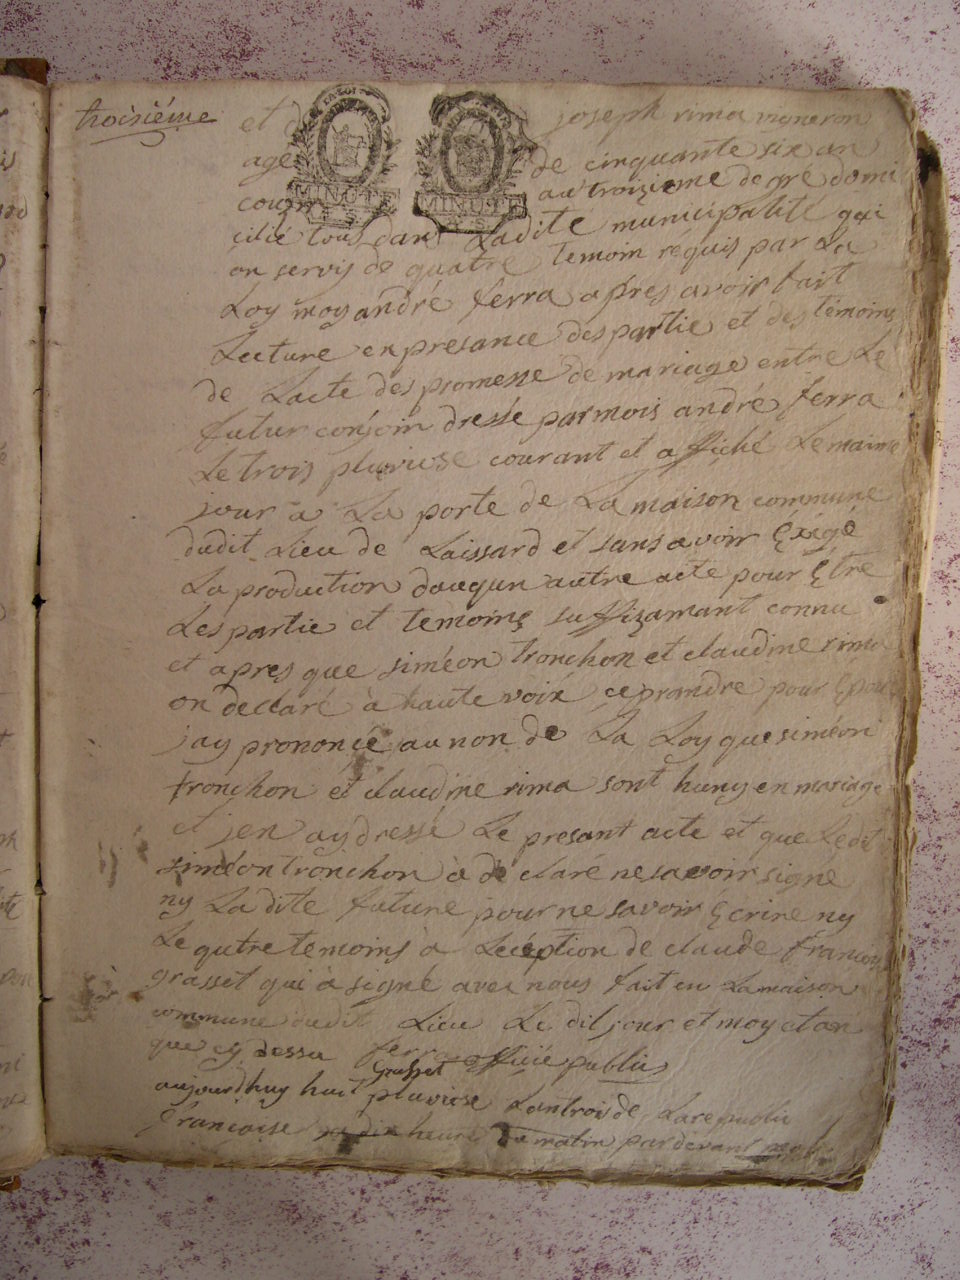 troisiéme
et de joseph rima vigneron
age de cinquante six an
cousin au troizieme degré domi
cilié tous dans Ladite municipalité qui
on servis de quatre temoin requis par La
Loy moy andré ferra apres avoir fait
Lecture en presance des partie et des témoins
de Lacte des promesse de mariage entre Le
futur conjoin dressée par mois andré ferra
Le trois pluviose courant et affiché Le maime
jour à La porte de La maison commune
dudit Lieu de Laissard et sans avoir Exigé
La production dauqun autre acte pour Etre
Les partie et temoins suffizamant connu
et apres que siméon tronchon et claudine rima
on declaré à haute voix ce prandre pour Epoux
jay prononcé au non de La Loy que siméon
tronchon et claudine rima sont huny en mariage
et jen ay dressé Le presant acte et que Ledit
siméon tronchon à déclaré ne savoir signé
ny La dite future pour ne savoir Ecrire ny
Le qutre temoins à Lecéption de claude francois
grasset qui à signé avec nous fait en La maison
commune dudit Lieu Le dit jour et moy et an
que cy dessu ferra officié public
Grasset
aujourdhuy huit pluviose Lantrois de La republi
francaise dix heure du matin pardevant
LA LOI
MINUTE
MINUTE